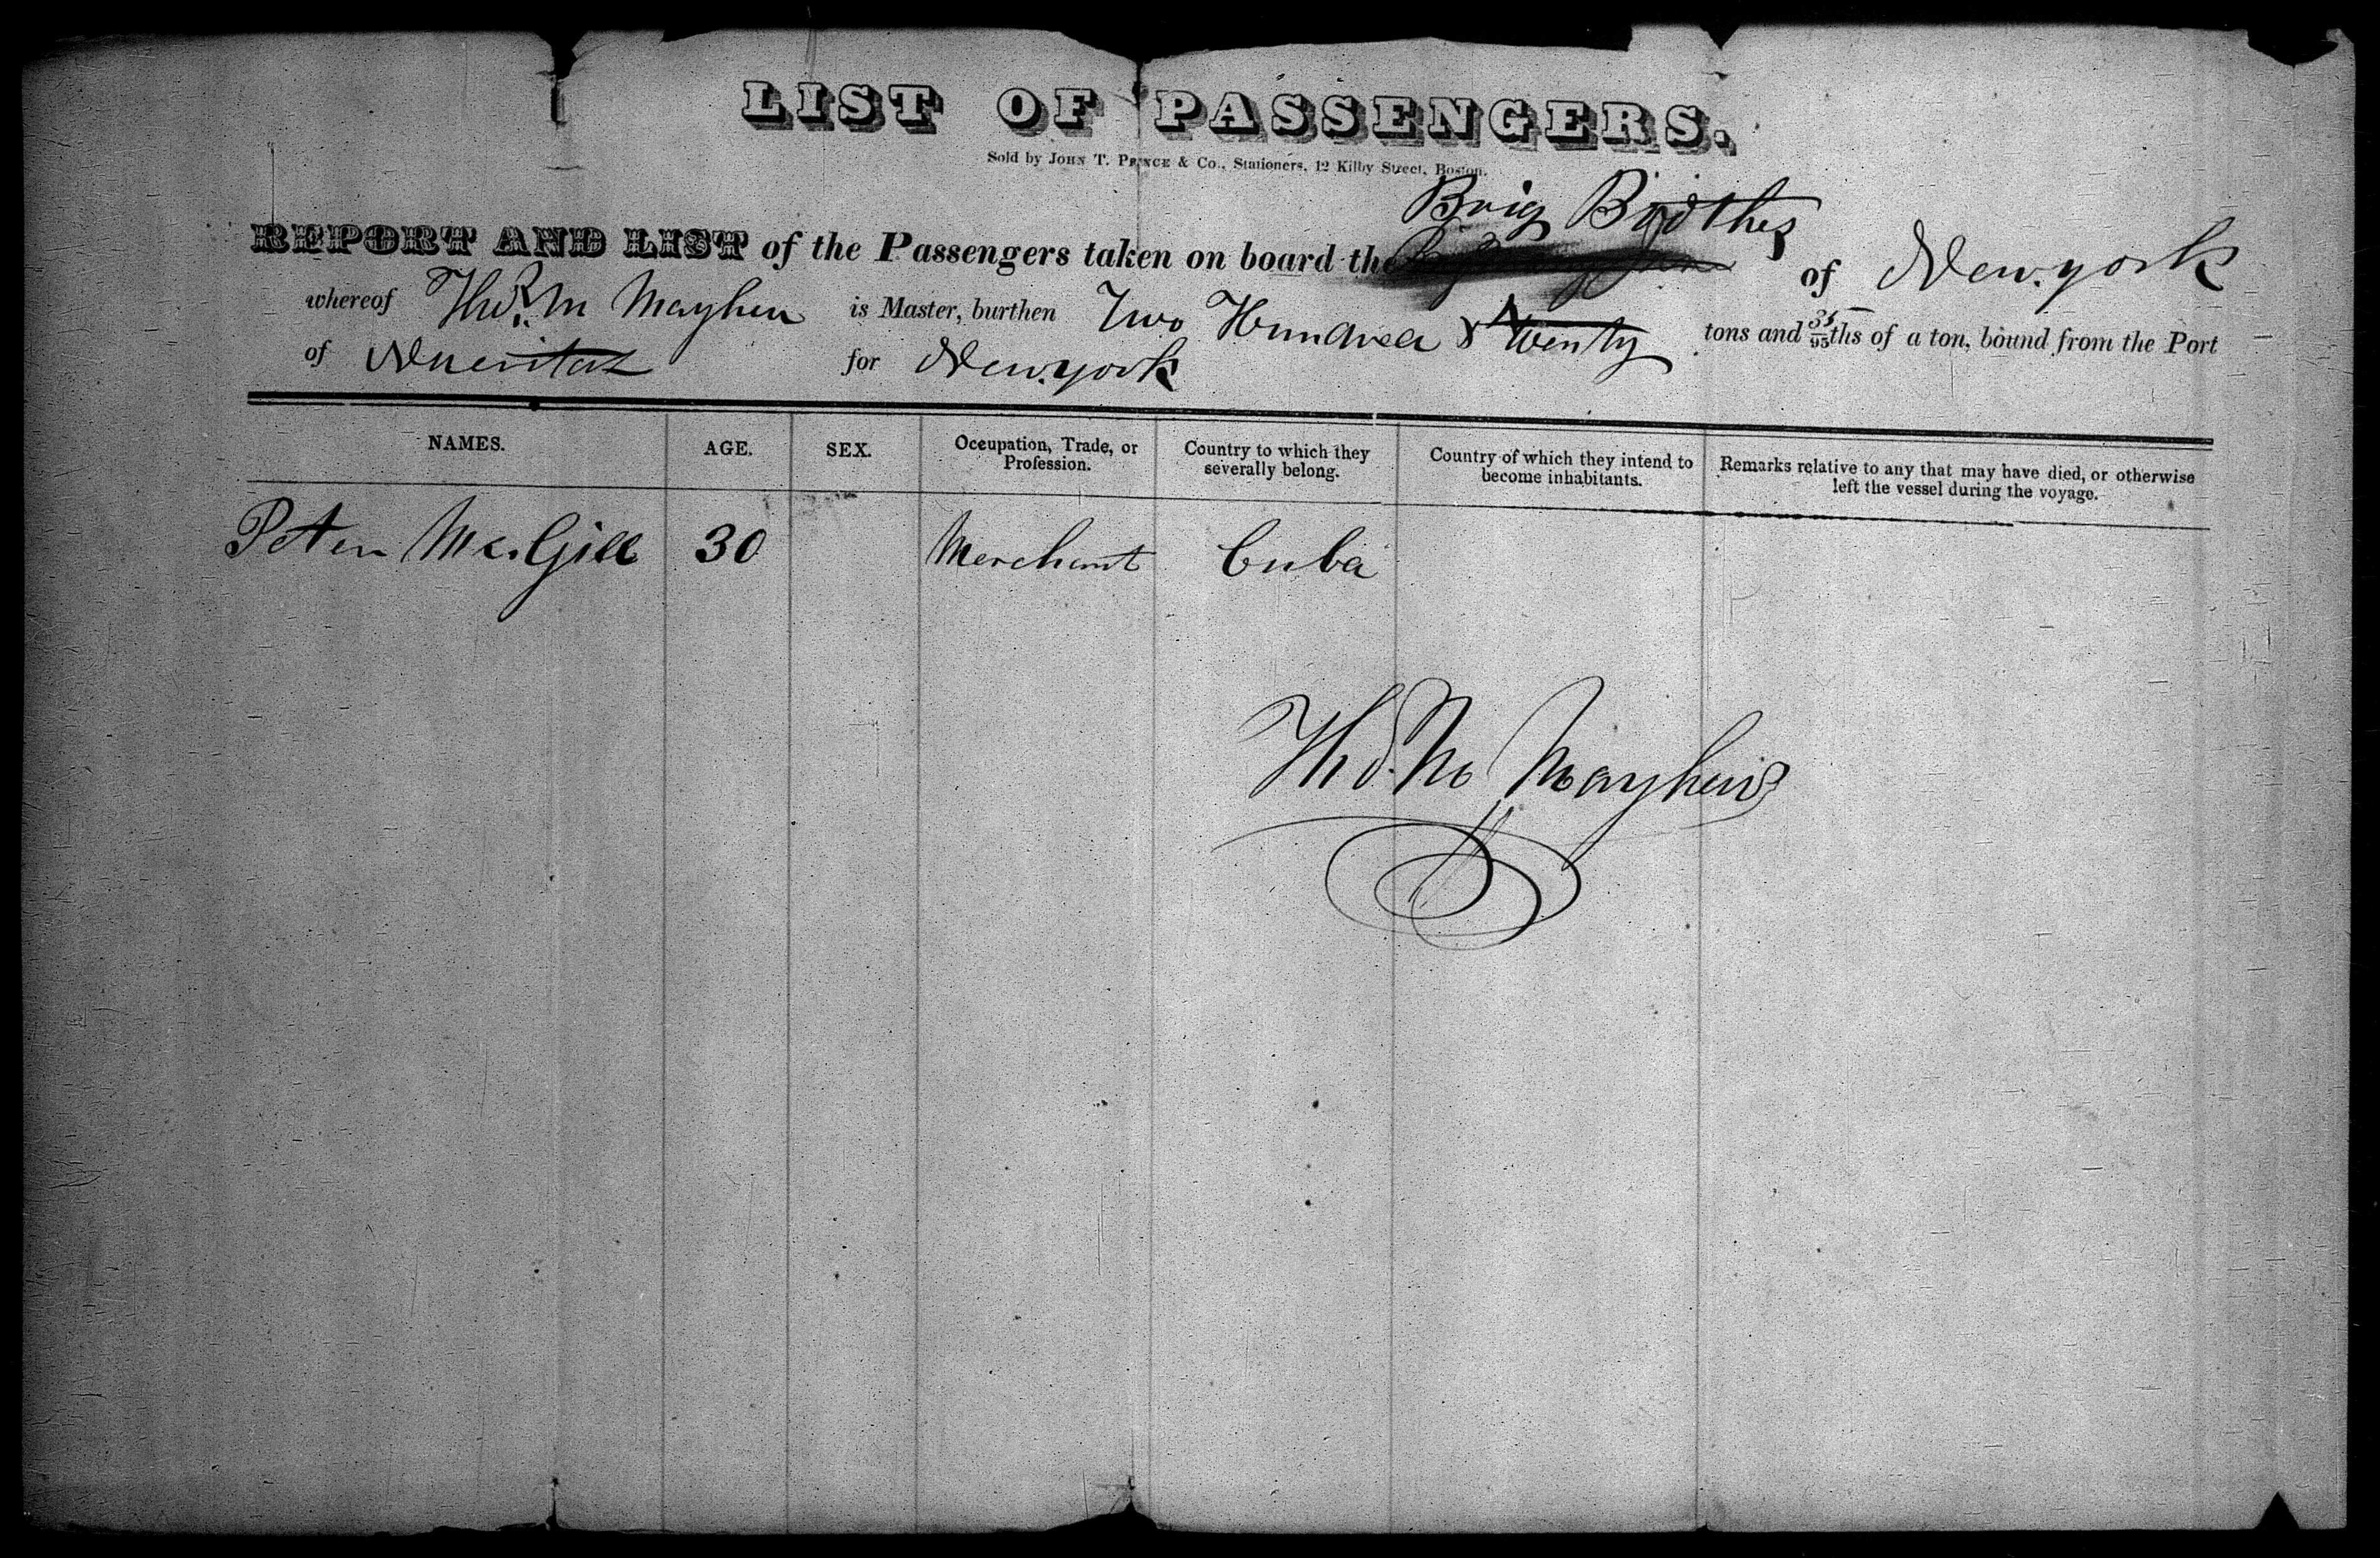 LIST OF PASSENGERS.
Sold by JOHN T. PRINCE & Co., Stationers, 12 Kilby Street, Boston.
Brig Brothes
REPORT AND LIST of the Passengers taken on board the of New york
whereof Thos. M Mayhew is Master, burthen Two Hundred & Twenty tons and 35/95ths of a ton, bound from the Port
of Nuevitas for New york
NAMES. AGE. SEX. Occupation, Trade, or Profession. Country to which they severally belong. Country of which they intend to become inhabitants. Remarks relative to any that may have died, or otherwise left the vessel during the voyage.
Peter McGill 30 Merchant Cuba
Thos. M Mayhew